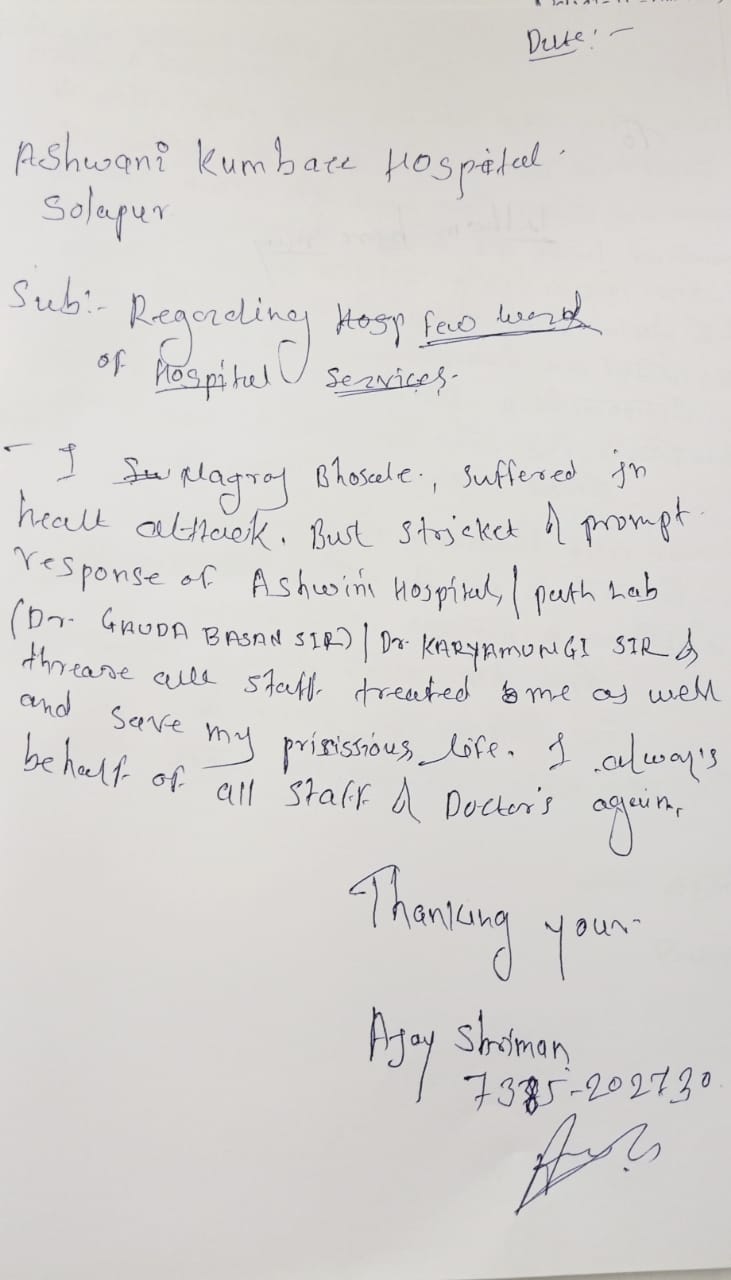 Date:-
Ashwani Kumbare Hospital.
Solapur
Sub:- Regarding Hosp few word
of Hospital Services.
- I Nagraj Bhosale., suffered in
heart attack. But stricket & prompt
response of Ashwini Hospital, / path Lab
(Dr. GAUDA BASAN SIR) / Dr. KARYAMUNGI SIR &
all staff treated me as well
and save my prisissious life. I always
behalf of all staff & Doctor's again,
Thanking your
Ajay Shriman
7385-202730